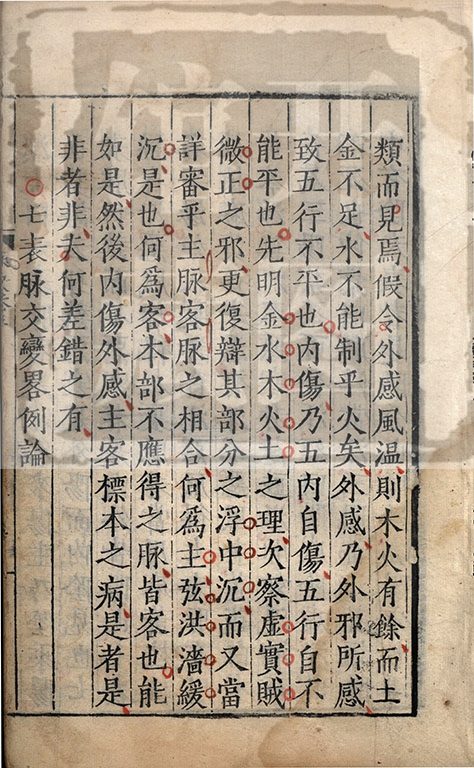 類而見焉假令外感風温則木火有餘而土
金不足水不能制乎火矣外感乃外邪所感
致五行不平也内傷乃五内自傷五行自不
能平也先明金水木火土之理次察虛實賊
微正之邪更復辯其部分之浮中沉而又當
詳審乎主脉客脉之相合何爲主弦洪濇緩
沉是也何爲客本部不應得之脉皆客也能
如是然後内傷外感主客標本之病是者是
非者非夫何差錯之有
七表脉交變畧例論